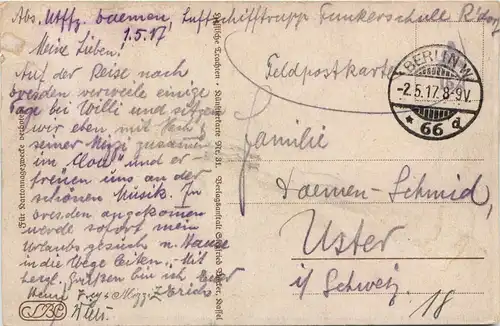 Abs. Utffz. Daemen, Luftschifftrupp Funkerschule R'dorf
1.5.17
Meine Lieben!
Auf der Reise nach
Dresden verweile einige
Tage bei Willi und sitzen
wir eben, mit
seiner Mizi zusammen
im "Clou" und er-
freuen uns an der
schönen Musik. In
Dresden angekommen
werde sofort mein
Urlaubsgesuch n. Hause
in die Wege leiten. Mit
herzl. Grüßen bin ich Euer
Heini
Willi
Für Kartonnagezwecke verboten
Hessische Trachten. Künstlerkarte Nr. 31. Verlagsanstalt Cassel
Feldpostkarte
BERLIN W
-2.5.17.8-9V.
* 66 d
Familie
Daemen-Schmid,
Uster
i/ Schweiz
18